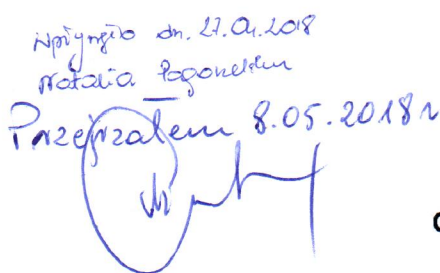 Wpłynęło dn. 27.04.2018
Natalia
Przejrzałem 8.05.2018 r